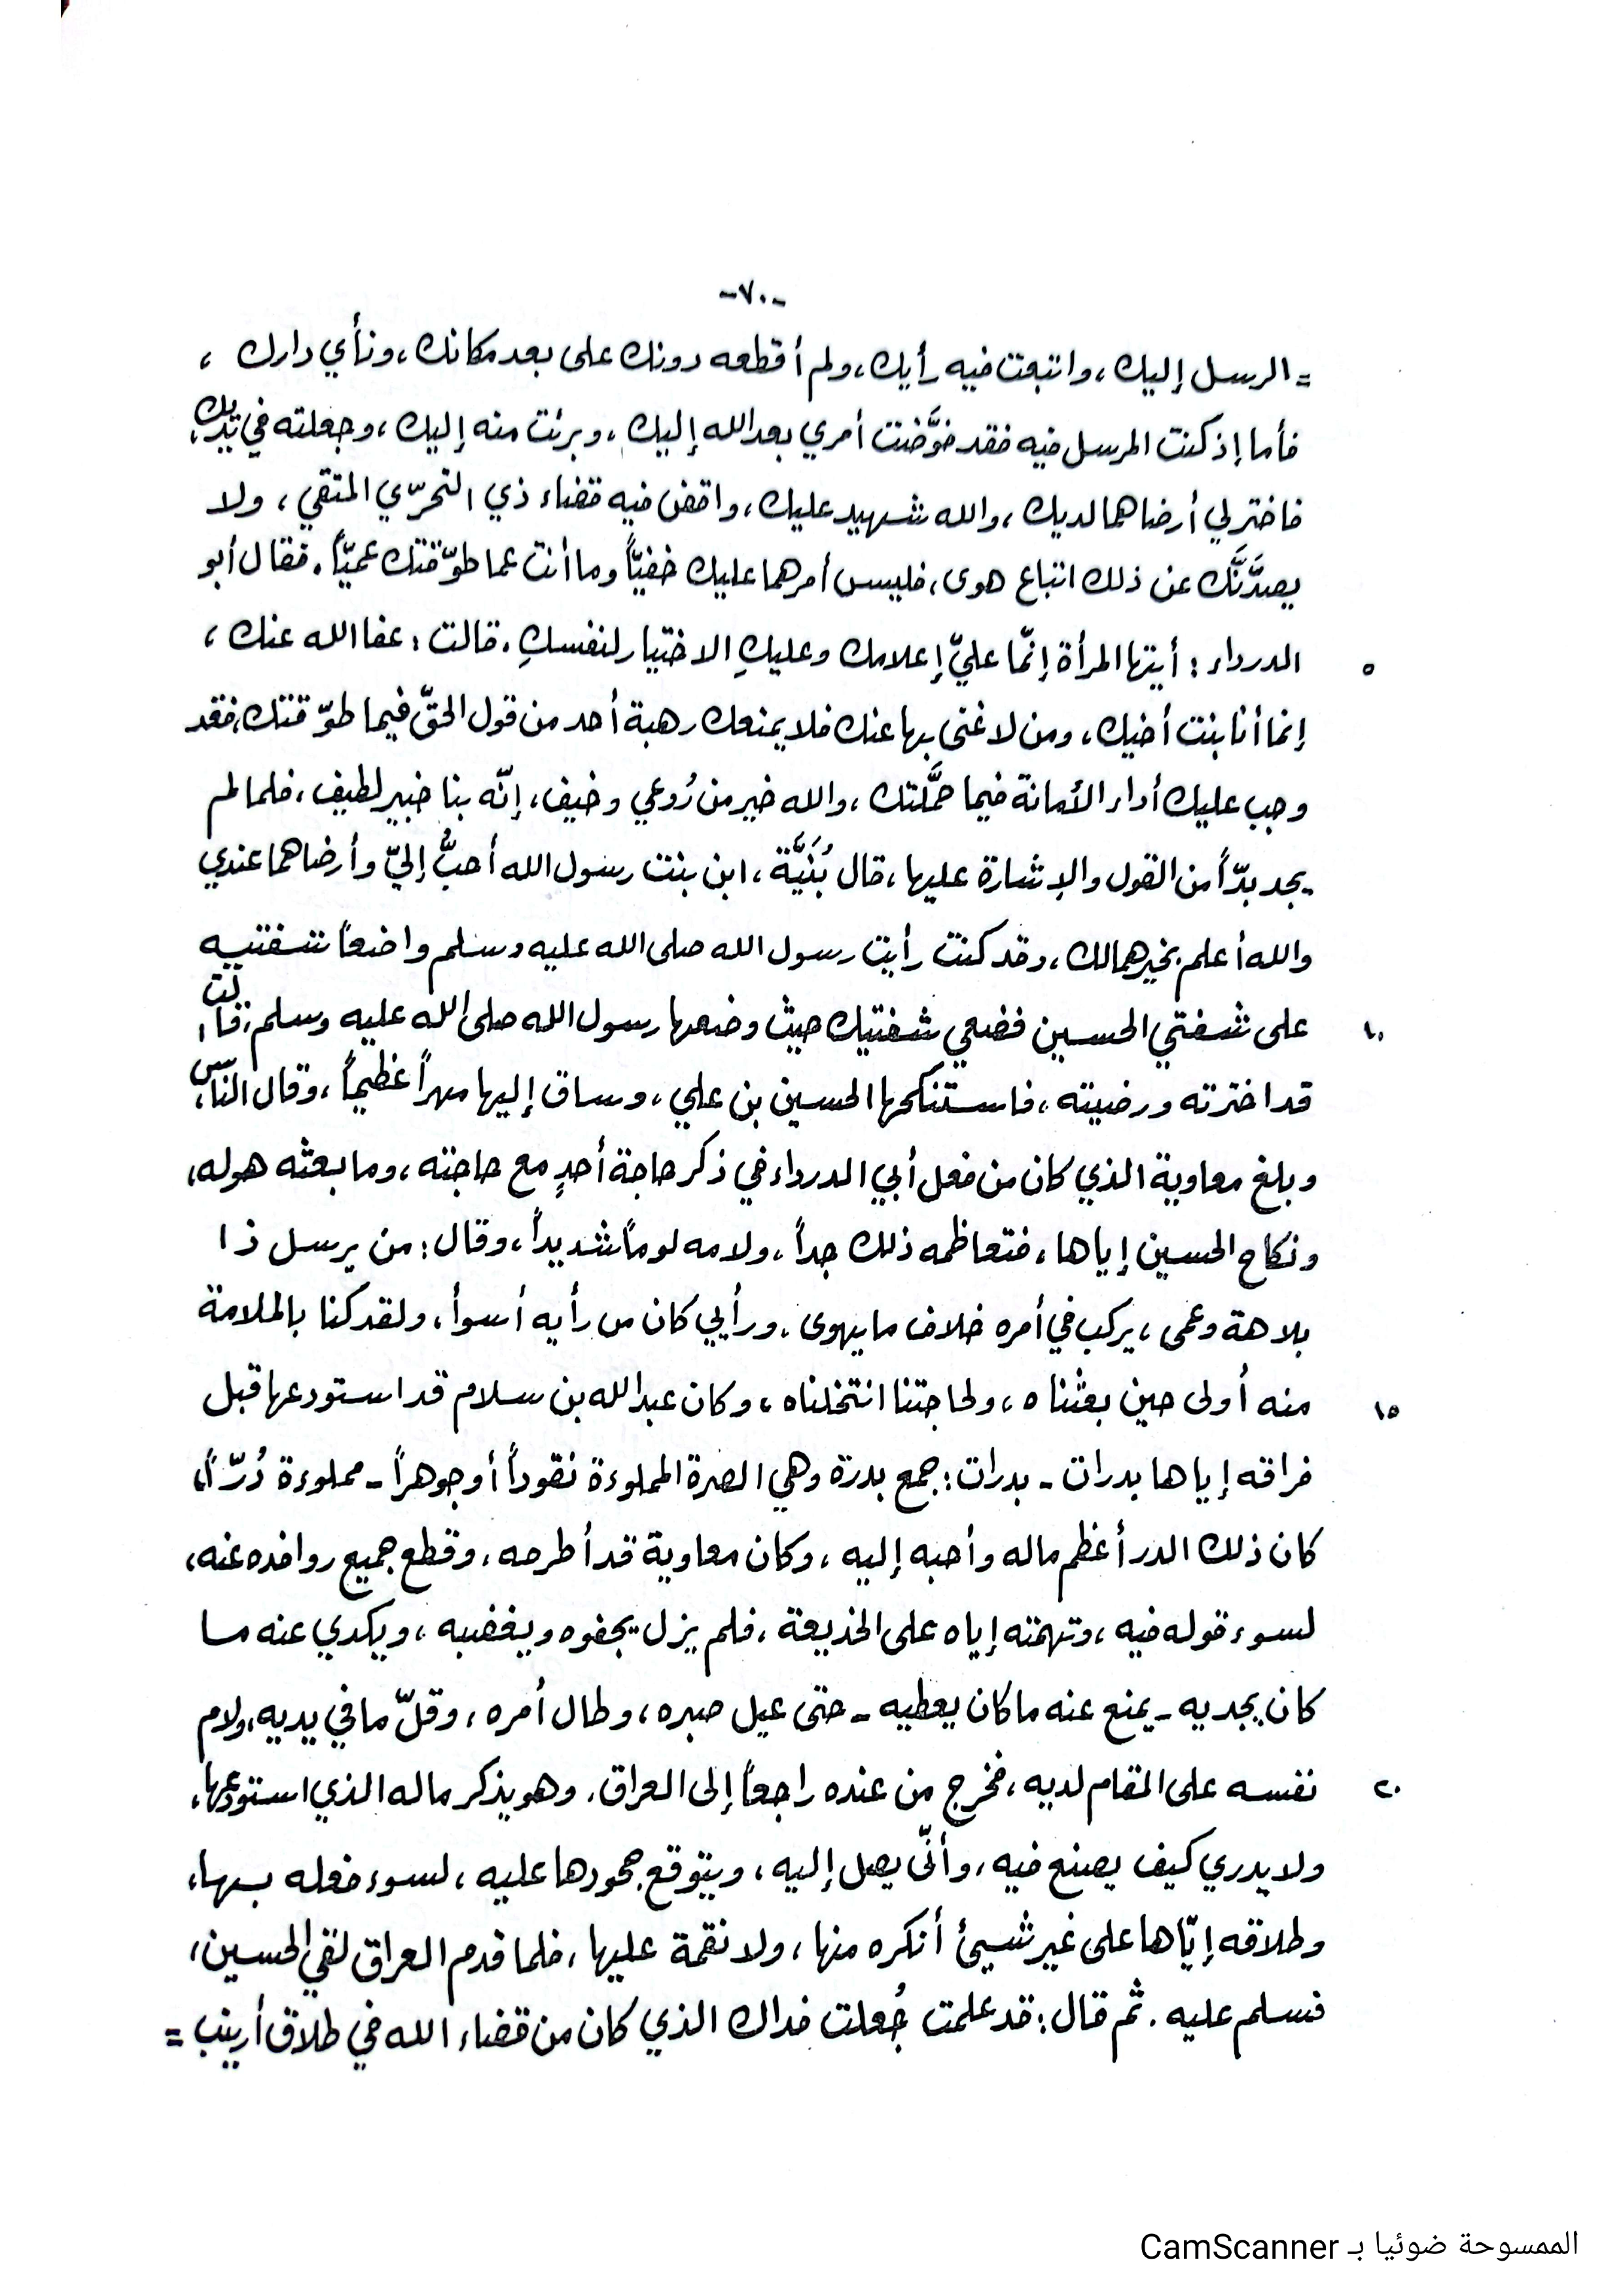 -٧٠-
= الرسل إليك، واتبعت فيه رأيك، ولم أقطعه دونك على بعد مكانك، ونأي دارك ،
فأما إذ كنت المرسل فيه فقد فوَّضت أمري بعد الله إليك ، وبرئت منه إليك، وجعلته في يديك،
فاختر لي أرضاهما لديك، والله شهيد عليك، واقض فيه قضاء ذي التحرّي المتقي، ولا
يصدَّنَّك عن ذلك اتباع هوى، فليس أمرهما عليك خفيّاً وما أنت عما طوّقتك عميّاً. فقال أبو
٥ الدرداء : أيتها المرأة إنّما عليّ إعلامك وعليكِ الاختيار لنفسكِ. قالت : عفا الله عنك ،
إنما أنا بنت أخيك، ومن لا غنى بها عنك فلا يمنعك رهبة أحد من قول الحقّ فيما طوّقتك، فقد
وجب عليك أداء الأمانة فيما حمَّلتك، والله خير من رُوعي وخيف، إنّه بنا خبير لطيف، فلما لم
يجد بدّاً من القول والإشارة عليها، قال بُنَيَّة، ابن بنت رسول الله أحبُّ إليّ وأرضاهما عندي
والله أعلم بخيرهما لك، وقد كنت رأيت رسول الله صلى الله عليه وسلم واضعاً شفتيه
١٠ على شفتي الحسين فضعي شفتيك حيث وضعها رسول الله صلى الله عليه وسلم، قالت:
قد اخترته ورضيته، فاستنكحها الحسين بن علي، وساق إليها مهراً عظيماً، وقال الناس،
وبلغ معاوية الذي كان من فعل أبي الدرداء في ذكر حاجة أحدٍ مع حاجته، وما بعثه هو له،
ونكاح الحسين إياها، فتعاظمه ذلك جداً، ولامه لوماً شديداً، وقال: من يرسل ذا
بلاهة وعمى، يركب في أمره خلاف ما يهوى، ورأيي كان من رأيه أسوأ، ولقد كنا بالملامة
١٥ منه أولى حين بعثناه، ولحاجتنا انتخلناه، وكان عبد الله بن سلام قد استودعها قبل
فراقه إياها بدرات - بدرات: جمع بدرة وهي الصرة المملوءة نقوداً أو جوهراً - مملوءة دُرّاً،
كان ذلك الدر أعظم ماله وأحبه إليه، وكان معاوية قد أطرحه، وقطع جميع روافده عنه،
لسوء قوله فيه، وتهمته إياه على الخديعة، فلم يزل يجفوه ويغضبه، ويكدي عنه ما
كان يجديه - يمنع عنه ما كان يعطيه - حتى عيل صبره، وطال أمره، وقلّ ما في يديه، ولام
٢٠ نفسه على المقام لديه، فخرج من عنده راجعاً إلى العراق. وهو يذكر ماله الذي استودعها،
ولا يدري كيف يصنع فيه، وأنّى يصل إليه، ويتوقع جحودها عليه، لسوء فعله بها،
وطلاقه إيّاها على غير شيئ أنكره منها، ولا نقمة عليها، فلما قدم العراق لقي الحسين،
فسلم عليه. ثم قال: قد علمت جُعلت فداك الذي كان من قضاء الله في طلاق أرينب =
الممسوحة ضوئيا بـ CamScanner